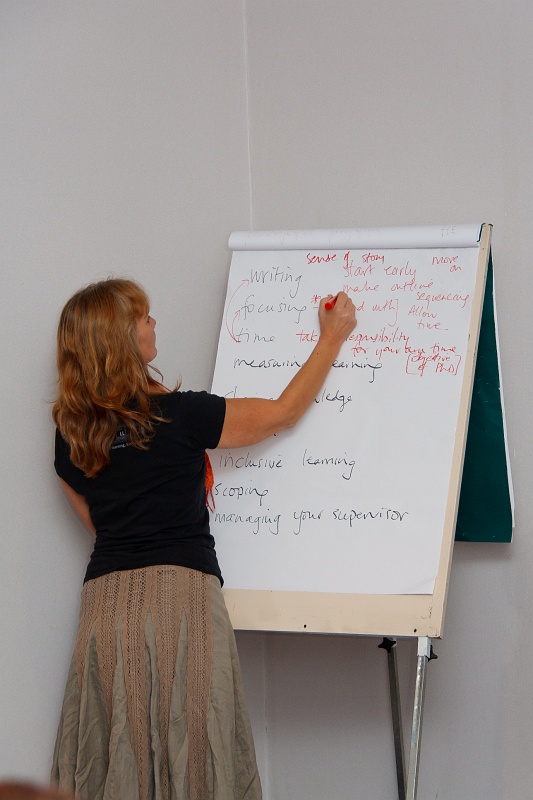 sense of story move on
writing start early
make outline
focusing * sequencing
Allow time
time take responsibility
for your own time
measuring learning [objective of PhD]
inclusive learning
scoping
managing your supervisor